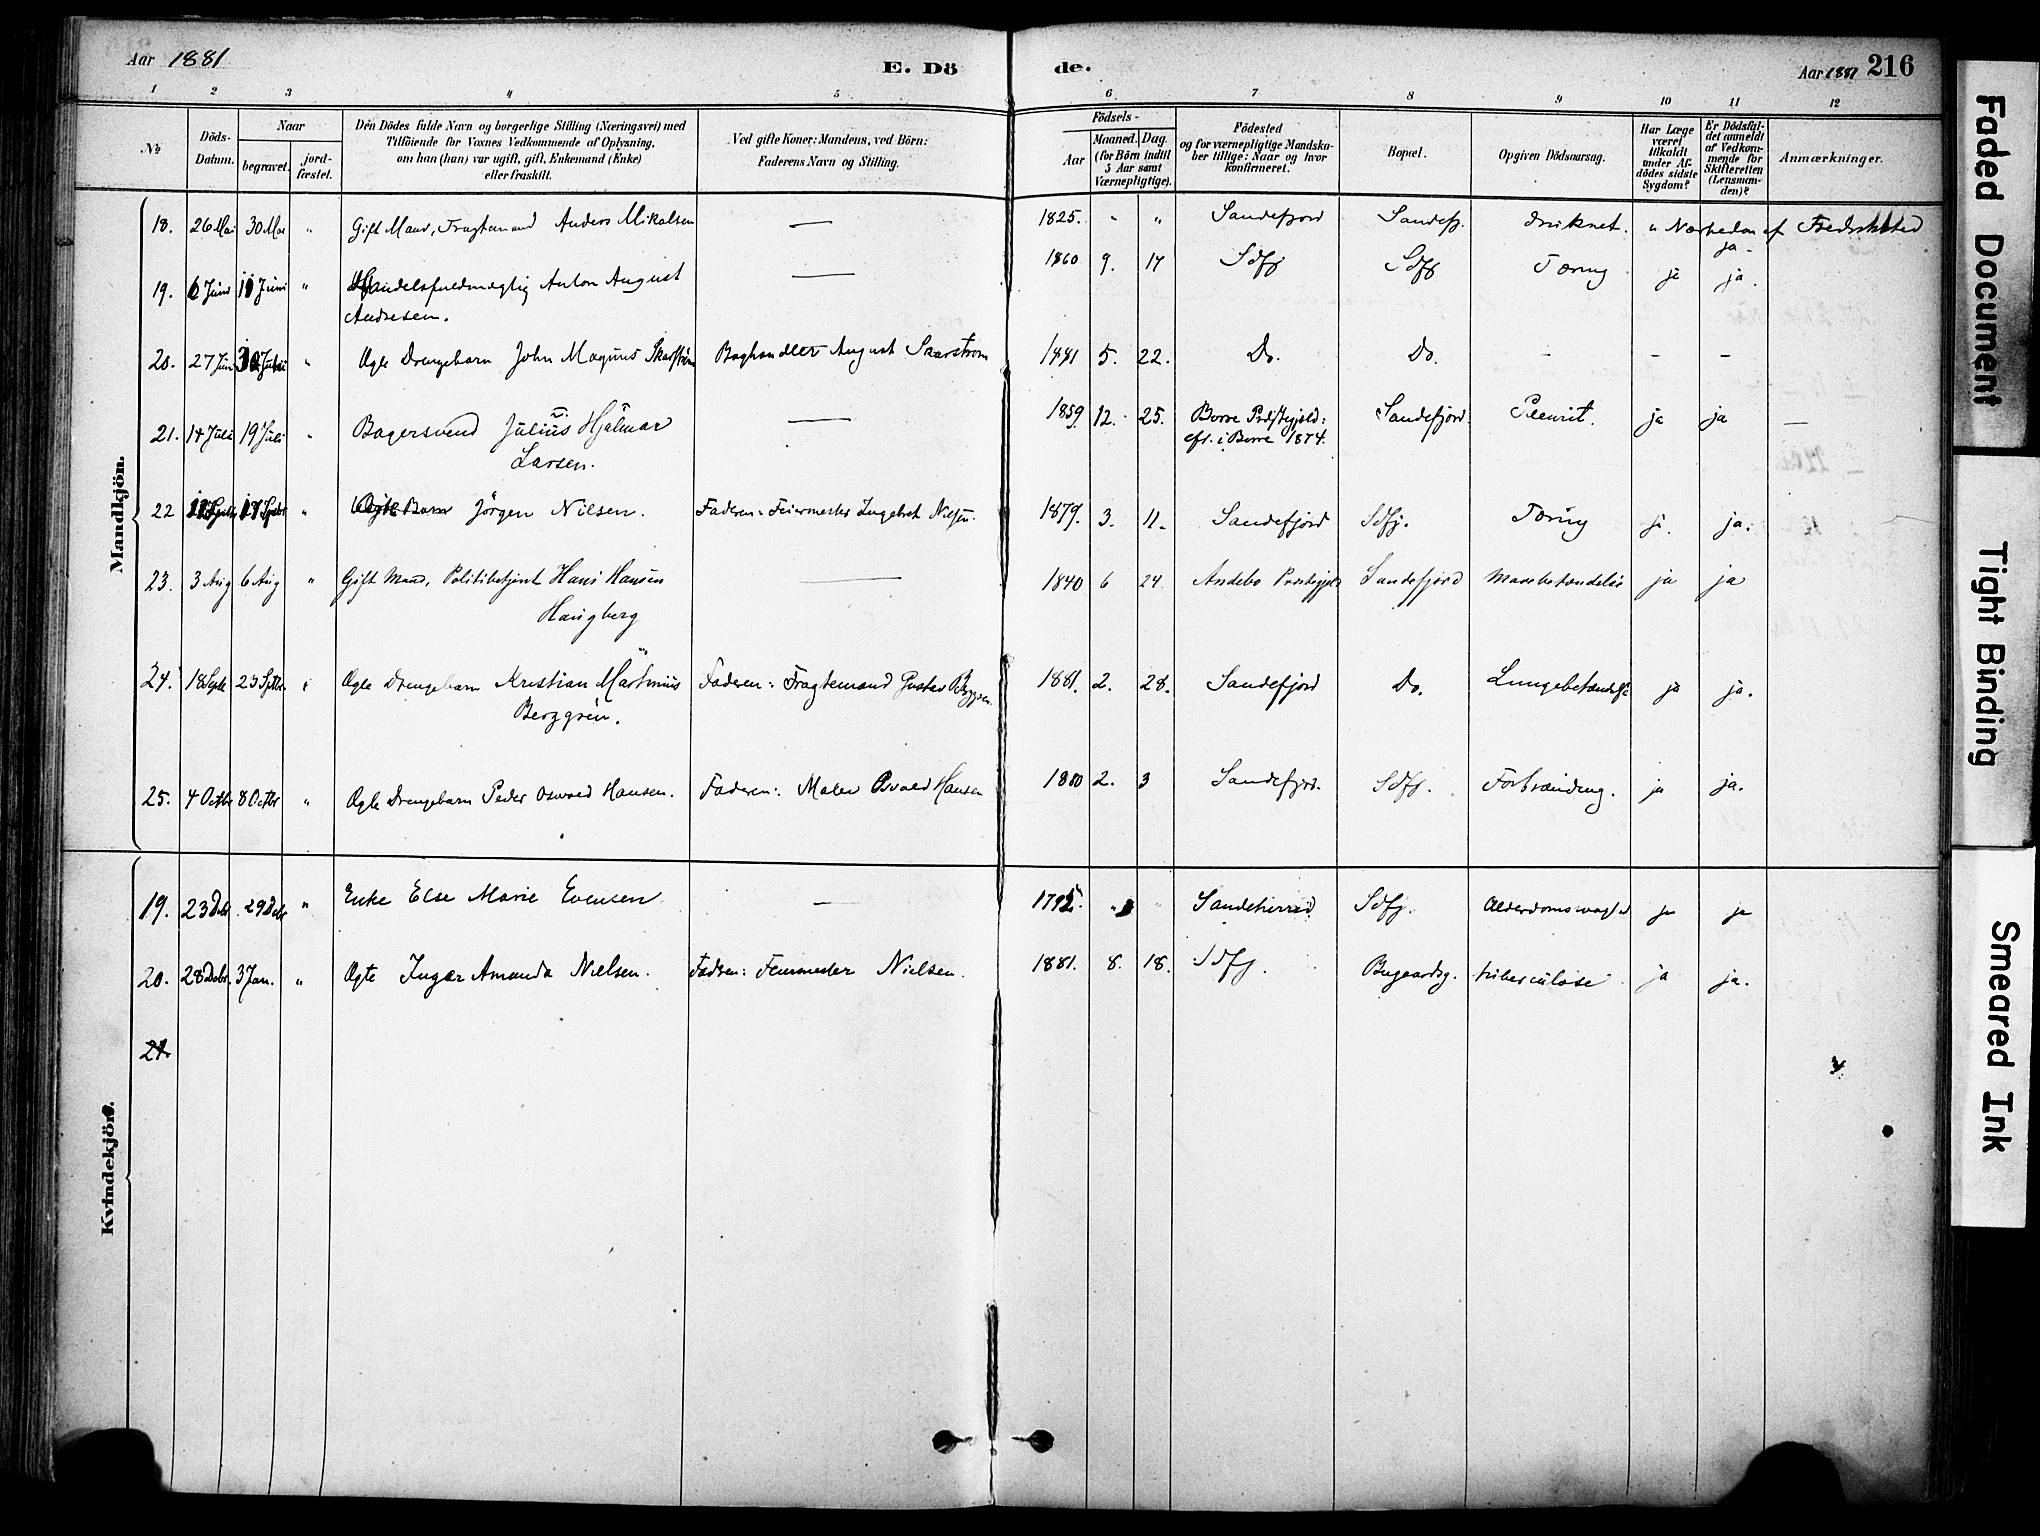 Aar 1881
E. Dö
de.
Aar 1881 216
1 2 3 4 5 6 7 8 9 10 11 12
No
Döds-
Datum.
Naar
begravet.
jord-
fæstet.
Den Dödes fulde Navn og borgerlige Stilling (Næringsvei) med
Tilföiende for Voxnes Vedkommende af Oplysning,
om han (hun) var ugift, gift, Enkemand (Enke)
eller fraskilt.
Ved gifte Koner: Mandens, ved Börn:
Faderens Navn og Stilling.
Födsels-
Aar
Maaned. Dag.
(for Börn indtil
5 Aar samt
Værnepligtige).
Födested
og for værnepligtige Mandska-
ber tillige: Naar og hvor
konfirmeret.
Bopæl.
Opgiven Dödsaarsag.
Har Læge
været
tilkaldt
under Af-
dödes sidste
Sygdom?
Er Dödsfal-
det anmeldt
af Vedkom-
mende for
Skifteretten
(Lensman-
den)?
Anmærkninger.
Mandkjön.
18. 26 Mai 30 Mai " Gift Mand, Fragtemand Anders Mikalsen — 1825. " " Sandefjord Sandefj. druknet. " Nærheden af Fredrikstad
ja.
19. 6 Juni 11 Juni " Handelsfuldmægtig Anton August — 1860 9. 17 Sdfj Sdfj Tæring ja ja.
Andresen.
20. 27 Juni " Ægte Drengebarn John Magnus Skarstrøm Boghandler August Skarstrøm 1881 5. 22. Do. Do. - - -
21. 14 Juli 19 Juli " Bagersvend Julius Hjalmar — 1859 12. 25. Borre Præstegjeld: Sandefjord. Pleurit. ja ja —
Larsen. cfr. i Borre 1874.
22 " Ægte Barn Jörgen Nilsen. Faderen: Feiermester Ingebret Nilsen. 1879. 3. 11. Sandefjord Sdfj. Tæring ja. ja.
23. 3 Aug 6 Aug " Gift Mand, Politibetjent Hans Hansen — 1840 6 24. Andebo Præstegjeld Sandefjord Mavebetændelse ja ja
Haugberg
24. 18 Septb 23 Septbr. " Ægte Drengebarn Kristian Martinius Faderen: Fragtemand Gustav Berggren. 1881. 2. 28. Sandefjord Do. Lungebetændelse ja ja.
Berggrén.
25. 4 Octbr 8 Octbr " Ægte Drengebarn Peder Osvald Hansen. Faderen: Maler Osvald Hansen 1880 2. 3 Sandefjord. Sdfj. Forbrænding. ja ja.
Kvindekjön.
19. 23 Debr 29 Debr " Enke Else Marie Evensen — Sandeherred Sdfj. Alderdomssvaghed ja ja
20. 28 Debr. 3 Jan. " Ægte Inger Amanda Nielsen. Faderen: Feiermester Nielsen. 1881. 8. 18. Sdfj. Bugaardsg. tuberculose ja ja.
21.
Faded Document
Tight Binding
Smeared Ink